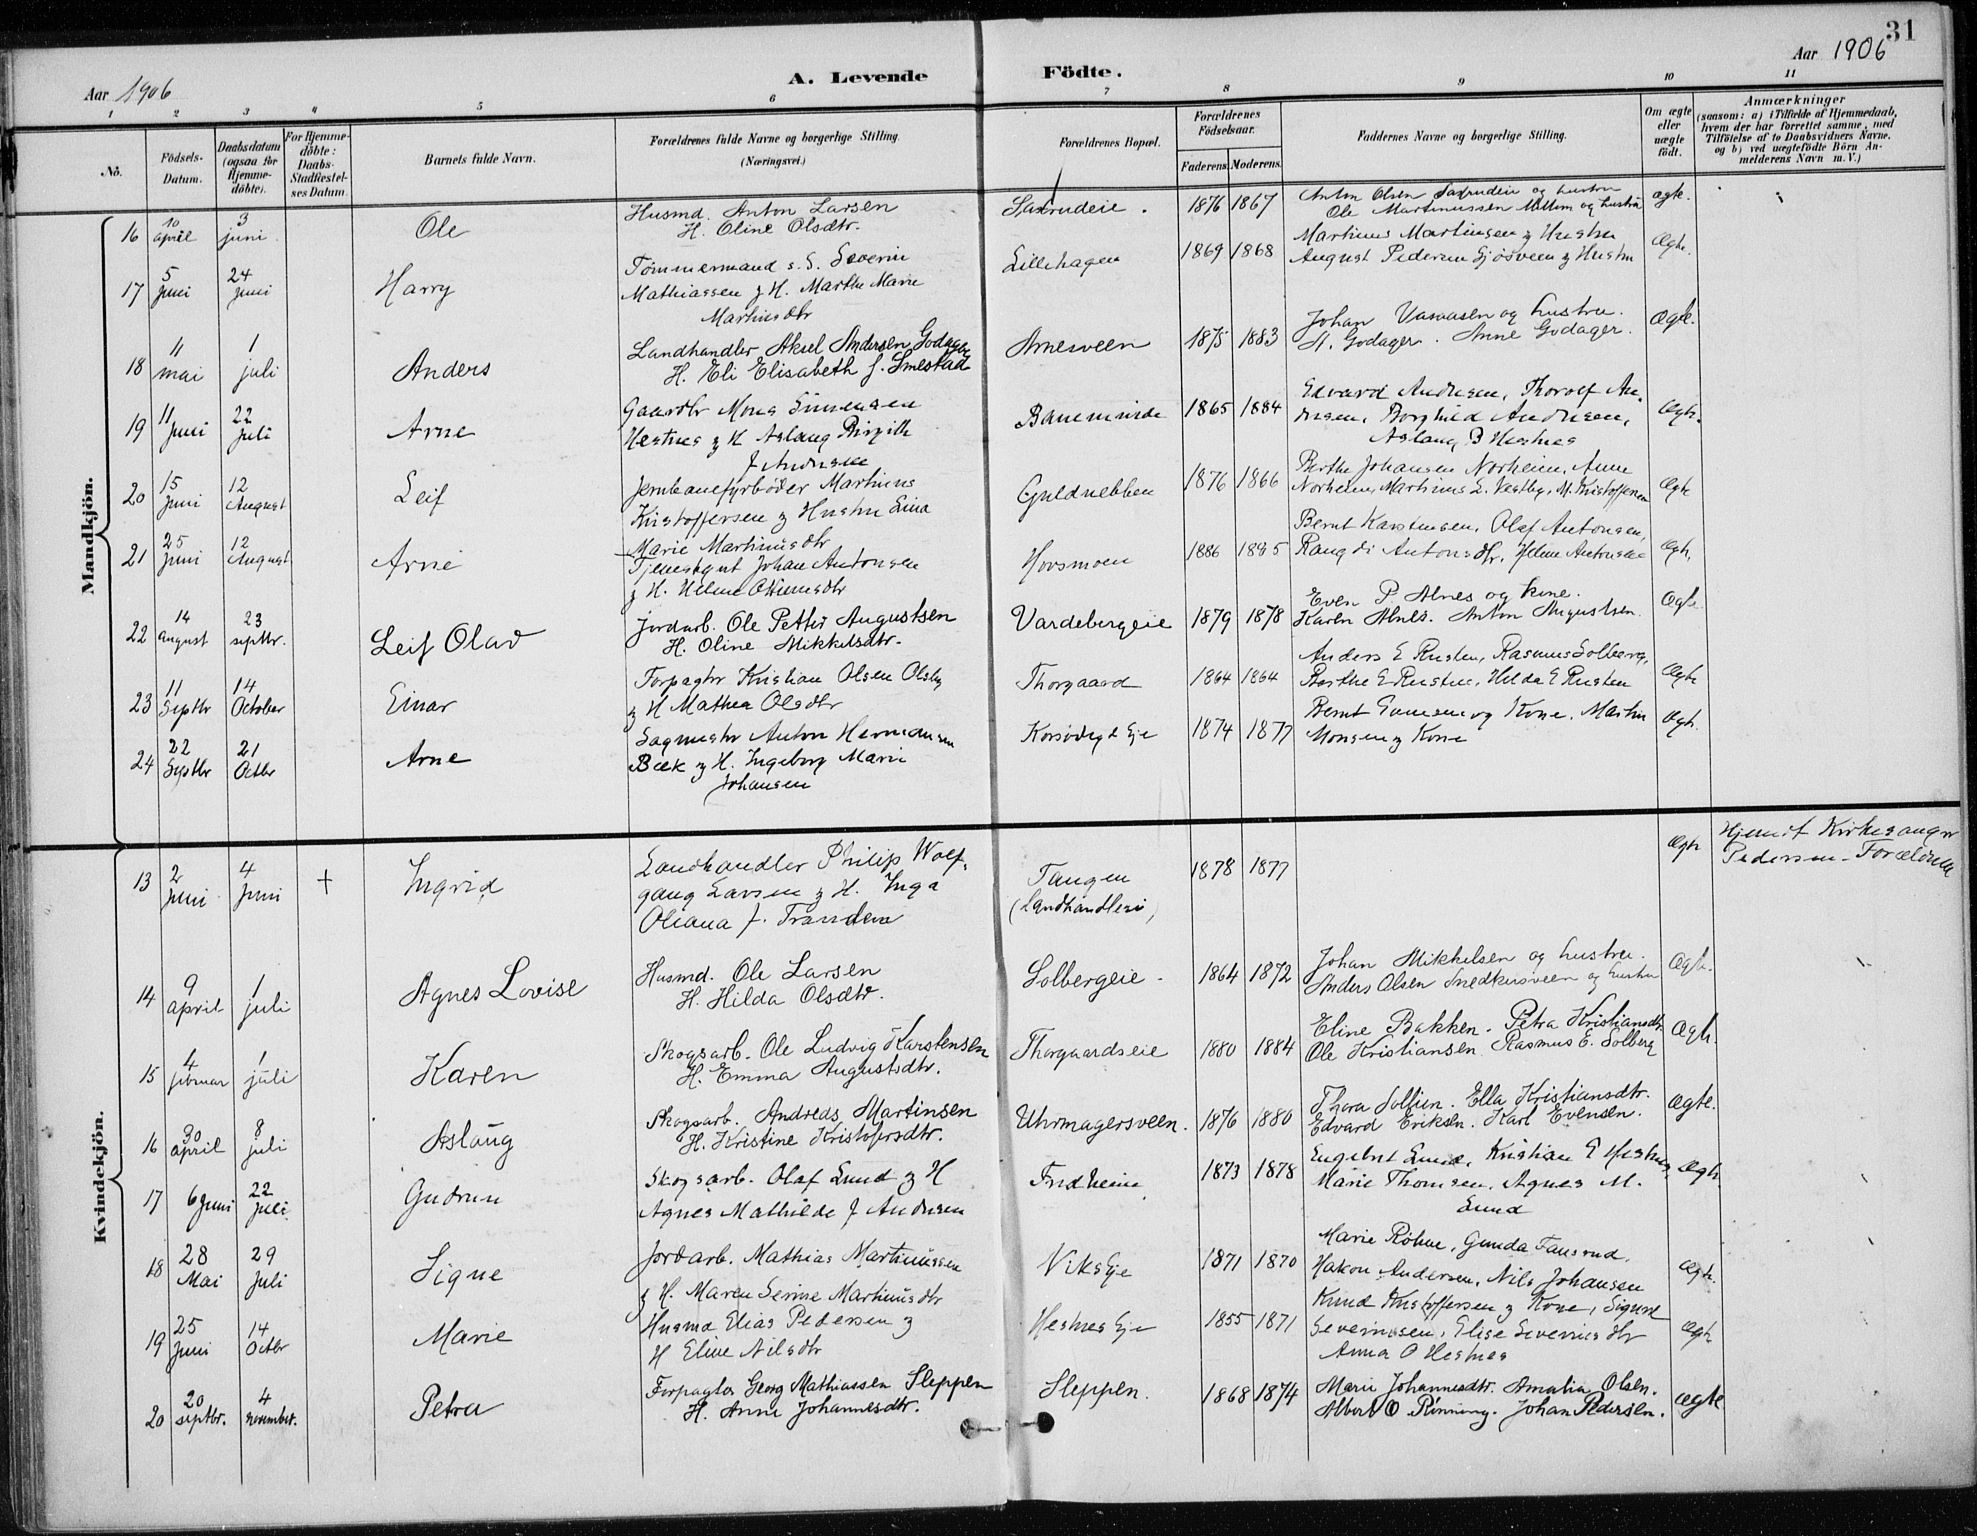 31
Aar 1906
A. Levende Födte.
Aar 1906
1 2 3 4 5 6 7 8 9 10 11
No.
Födsels-Datum.
Daabsdatum (ogsaa for Hjemme-döbte).
For Hjemme-döbte: Daabs-Stadfæstel-ses Datum.
Barnets fulde Navn.
Forældrenes fulde Navne og borgerlige Stilling.
(Næringsvei.)
Forældrenes Bopæl.
Forældrenes Födselsaar.
Faderens. Moderens.
Faddernes Navne og borgerlige Stilling.
Om ægte eller uægte födt.
Anmærkninger
(saasom: a) i Tilfælde af Hjemmedaab, hvem der har forrettet samme, med Tilföielse af to Daabsvidners Navne, og b) ved uægtefödte Börn An-melderens Navn m. V.)
Mandkjön.
16 10 april 3 juni Ole Husmd. Anton Larsen
H. Oline Olsdtr. Saxrudeie. 1876 1867 Anton Olsen Saxrudeie og hustru
Ole Martinussen Mellum og hustru ægte.
17 5 Juni 24 Juni Harry Tømmermand s. S. Severin
Mathiassen & H. Marthe Marie
Martinsdtr Lillehagen 1869 1868 Martinus Martinsen & Hustru
August Pedersen Sjøsveen & Hustru Ægte.
18 11 mai 1 juli Anders Landhandler Aksel Andersen Godager
H. Eli Elisabeth f. Smestad Arnesveen 1875 1883 Johan og hustru.
A. Godager. Anne Godager. Ægte.
19 11 Juni 22 Juli Arne Gaardbr Mons Simensen
Hestnes & H Aslaug Birgith
f Andersen 1865 1884 Edvard Andresen, Thorolf An-
dresen, Borghild Andresen,
Aslaug B Hestnes Ægte.
20 15 Juni 12 August Leif Jernbanefyrbøder Martinus
Kristoffersen & Hustru Lina
Marie Martinusdtr Guldnebben 1876 1866 Berthe Johansen Norheim, Anne
Norheim, Martinus L. Vestby, M. Kristoffersen Ægte
21 25 Juni 12 August Arne Tjenestegut Johan Antonsen
& H. Helene Ottinusdtr Hovsmoen 1886 1885 Bernt Karstensen, Olaf Antonsen,
Rangdi Antonsdtr, Helene Antonsen Ægte.
22 14 august 23 septbr. Leif Olav Jordarb. Ole Petter Augustsen
H. Oline Mikkelsdtr. Vardebergeie 1879 1878 Even P Alnes og kone.
Karen Alnes. Anton Augustsen. Ægte
23 11 Septbr 14 October Einar Forpagter Kristian Olsen Olsby
& H Mathea Olsdtr Thorgaard 1864 1864 Anders E Rusten, Rasmus Solberg,
Berthe E Rusten, Hilda E Rusten Ægte
24 22 Septbr 21 Octbr Arne Sagmester Anton Hermansen
Bæk & H. Ingeborg Marie
Johansen Korsødegd Eje 1874 1877 Bernt og Kone. Martin
Monsen & Kone Ægte.
Kvindekjön.
13 2 Juni 4 Juni † Ingrid Landhandler Philip Wolf-
gang Larsen & H. Inga
Oliana f. Trandem Tangen
(Landhandleri) 1878 1877 Ægte Hjemdt Kirkesanger
Pedersen - Forældrene
14 9 april 1 juli Agnes Lovise Husmd. Ole Larsen
H. Hilda Olsdtr. Solbergeie. 1864 1872 Johan Mikkelsen og hustru.
Anders Olsen Snedkersveen og hustru Ægte.
15 4 februar 1 juli Karen Skogsarb. Ole Ludvig Karstensen
H. Emma Augustsdtr. Thorgaardseie 1880 1884 Eline Bakken. Petra Kristiansdtr
Ole Kristiansen. Rasmus E. Solberg Ægte.
16 30 april 8 juli Aslaug Skogsarb. Andreas Martinsen
H. Kristine Kristofersdtr. Uhrmagersveen. 1876 1880 Thora Sollien. Ella Kristiansdtr.
Edvard Eriksen. Karl Evensen. Ægte.
17 6 Juni 22 Juli Gudrun Skogsarb. Olaf Lund & H
Agnes Mathilde f Andersen Fridheim 1873 1878 Engebret Lund, Kristian E Hestnes,
Marie Thomsen, Agnes M.
Lund Ægte.
18 28 Mai 29 Juli Signe Jordarb. Mathias Martinussen
& H. Maren Serine Martinusdtr Viks Eje 1871 1870 Marie Røhne, Gunda Fausrud,
Hakon Andersen, Nils Johansen Ægte.
19 25 Juni 14 Octbr Marie Husmd Elias Pedersen &
H Eline Nilsdtr Hestnes Eje 1855 1871 Knud Kristoffersen & Kone, Sigurd
Severinsen, Elise Severinsdtr
Anna O Hestnes Ægte
20 20 septbr. 4 november. Petra Forpagter Georg Mathiassen Sleppen
H. Anne Johannesdtr. Sleppen. 1868 1874 Marie Johannesdtr. Amalia Olsen.
Albert O Rønning. Johan Pedersen. Ægte